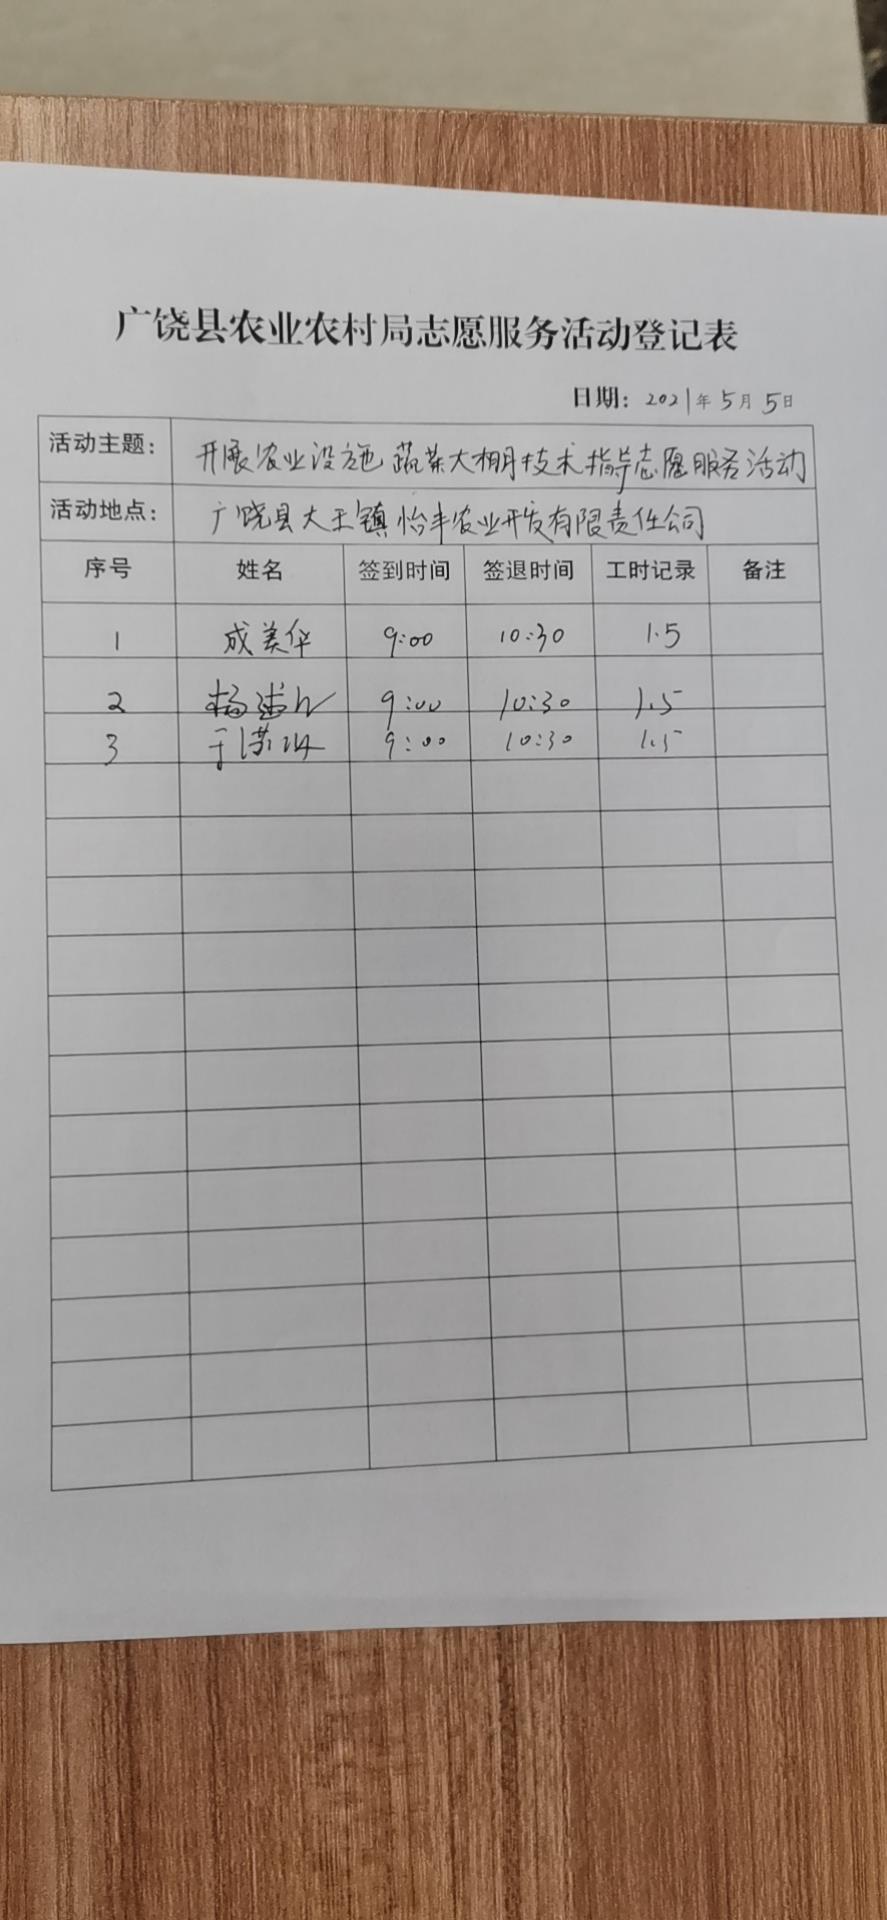 广饶县农业农村局志愿服务活动登记表
日期：2021年5月5日
活动主题： 开展农业设施蔬菜大棚技术指导志愿服务活动
活动地点： 广饶县大王镇怡丰农业开发有限责任公司
序号 姓名 签到时间 签退时间 工时记录 备注
1 成美华 9:00 10:30 1.5
2 9:00 10:30 1.5
3 9:00 10:30 1.5